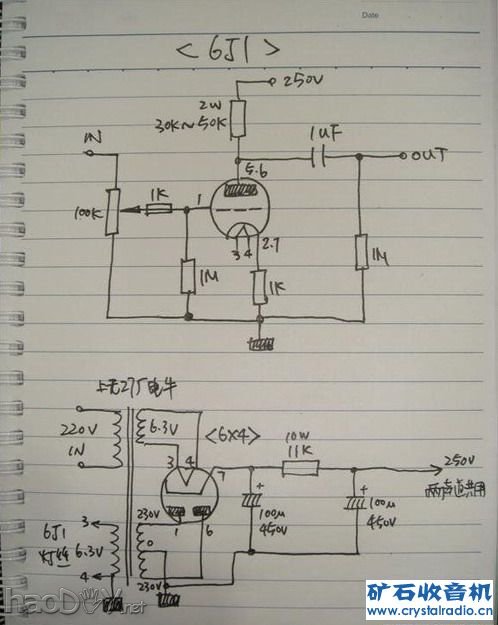 Date
<6J1>
250V
2W
30K~50K
1UF
IN
OUT
5.6
1K
1
100K
3 4
2.7
1M
1K
1M
上无27厂电牛
220V
IN
6.3V
<6X4>
3 4
7
10W
11K
250V
两声道共用
+
100μ
450V
+
100μ
450V
230V
1
6
0
230V
6J1
灯丝 6.3V
3
4
haoDIY.net
矿石收音机
www.crystalradio.cn